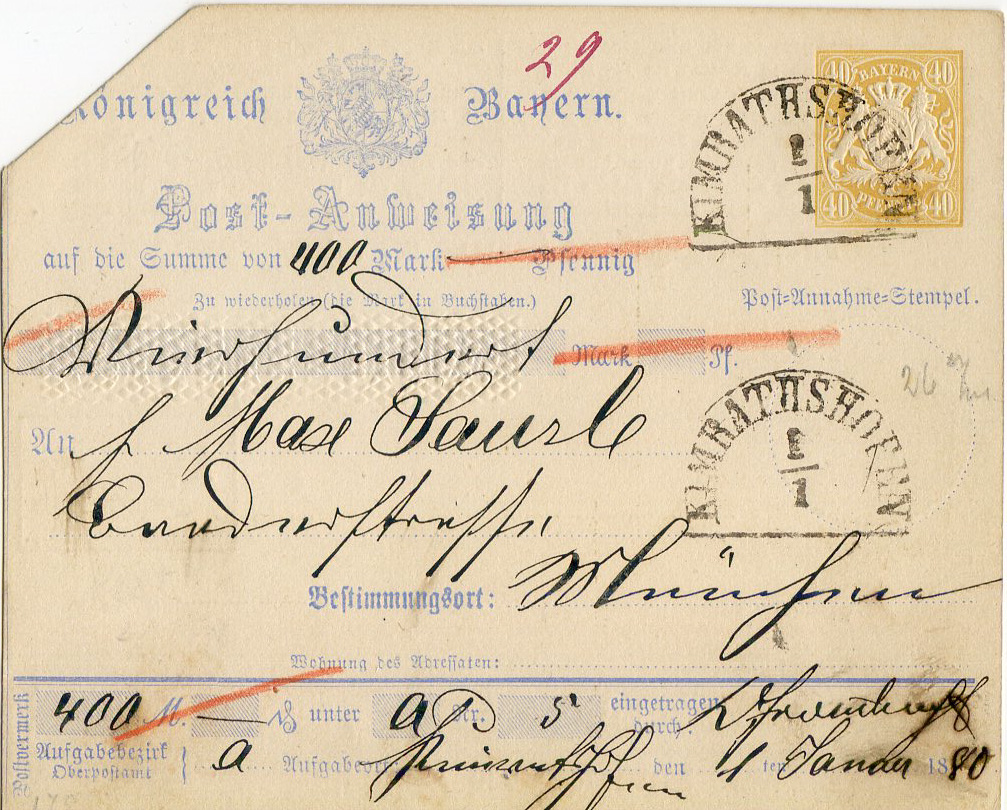 29
Königreich Bayern.
40 BAYERN 40
40 PFENNIG 40
KIMRATHSHOFEN
2
1
Post-Anweisung
auf die Summe von 400 Mark — Pfennig
Zu wiederholen (die Mark in Buchstaben.)
Post-Annahme-Stempel.
Vierhundert Mark Pf.
26
KIMRATHSHOFEN
2
1
An H Max Saurle
Baaderstrasse
Bestimmungsort: München
Wohnung des Adressaten:
Postvermerk
400 M. — ₰ unter A Nr. 5 eingetragen durch:
Aufgabebezirk Oberpostamt } a Aufgabeort: Kimratshofen den 1 ten Januar 1880